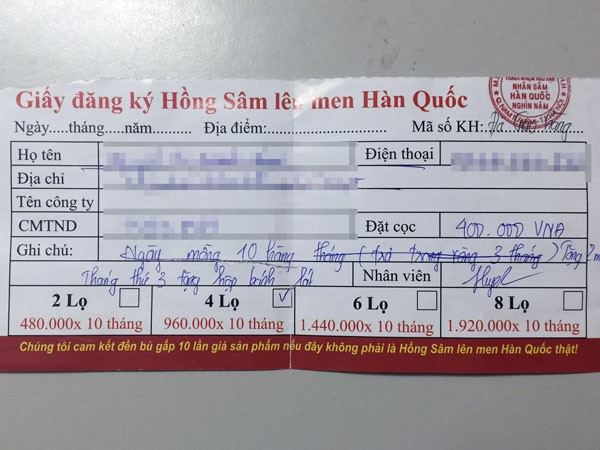 Giấy đăng ký Hồng Sâm lên men Hàn Quốc
NHÂN SÂM
HÀN QUỐC
NGHÌN NĂM
Ngày.....tháng....năm....... Địa điểm: Mã số KH: Đã giao hàng
Họ tên Điện thoại
Địa chỉ
Tên công ty
CMTND Đặt cọc 400.000 VNĐ
Ghi chú: Ngày mồng 10 hàng tháng (trả trong vòng 3 tháng) Tặng 2
Tháng thứ 3 tặng hộp bánh Nhân viên
2 Lọ 4 Lọ ✓ 6 Lọ 8 Lọ
480.000x 10 tháng 960.000x 10 tháng 1.440.000x 10 tháng 1.920.000x 10 tháng
Chúng tôi cam kết đền bù gấp 10 lần giá sản phẩm nếu đây không phải là Hồng Sâm lên men Hàn Quốc thật!